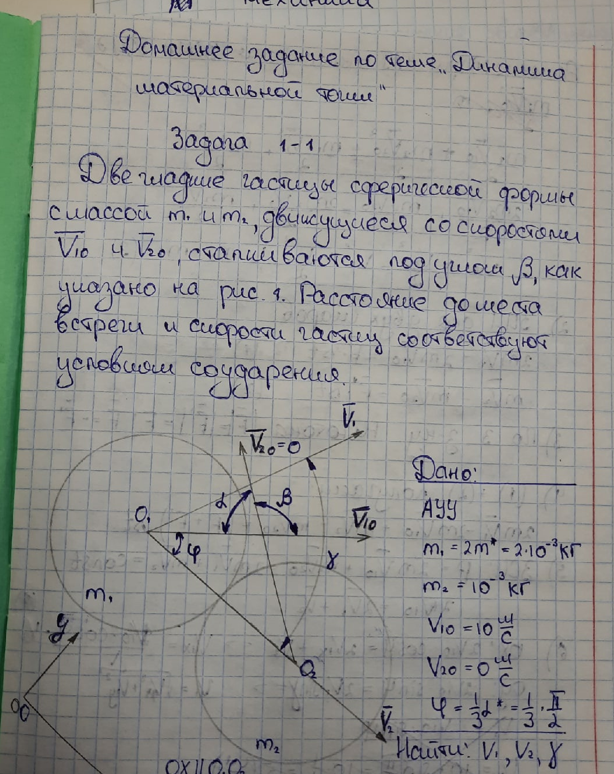 механика
Домашнее задание по теме „Динамика
материальной точки"
Задача 1-1
Две гладкие частицы сферической формы
с массой m₁ и m₂, движущиеся со скоростями
V̅₁₀ и V̅₂₀, сталкиваются под углом β, как
указано на рис. 1. Расстояние до места
встречи и скорости частиц соответствуют
условиям соударения.
V̅₁
V̅₂₀=0
Дано:
α
β
АУУ
O₁
V̅₁₀
φ
γ
m₁ = 2m* = 2·10⁻³кг
m₁
m₂ = 10⁻³кг
y
V₁₀ = 10 м/с
O₂
V₂₀ = 0 м/с
O
V̅₂
φ = 1/3 α* = 1/3 · π/2
m₂
Найти: V₁, V₂, γ
OX||O₁O₂